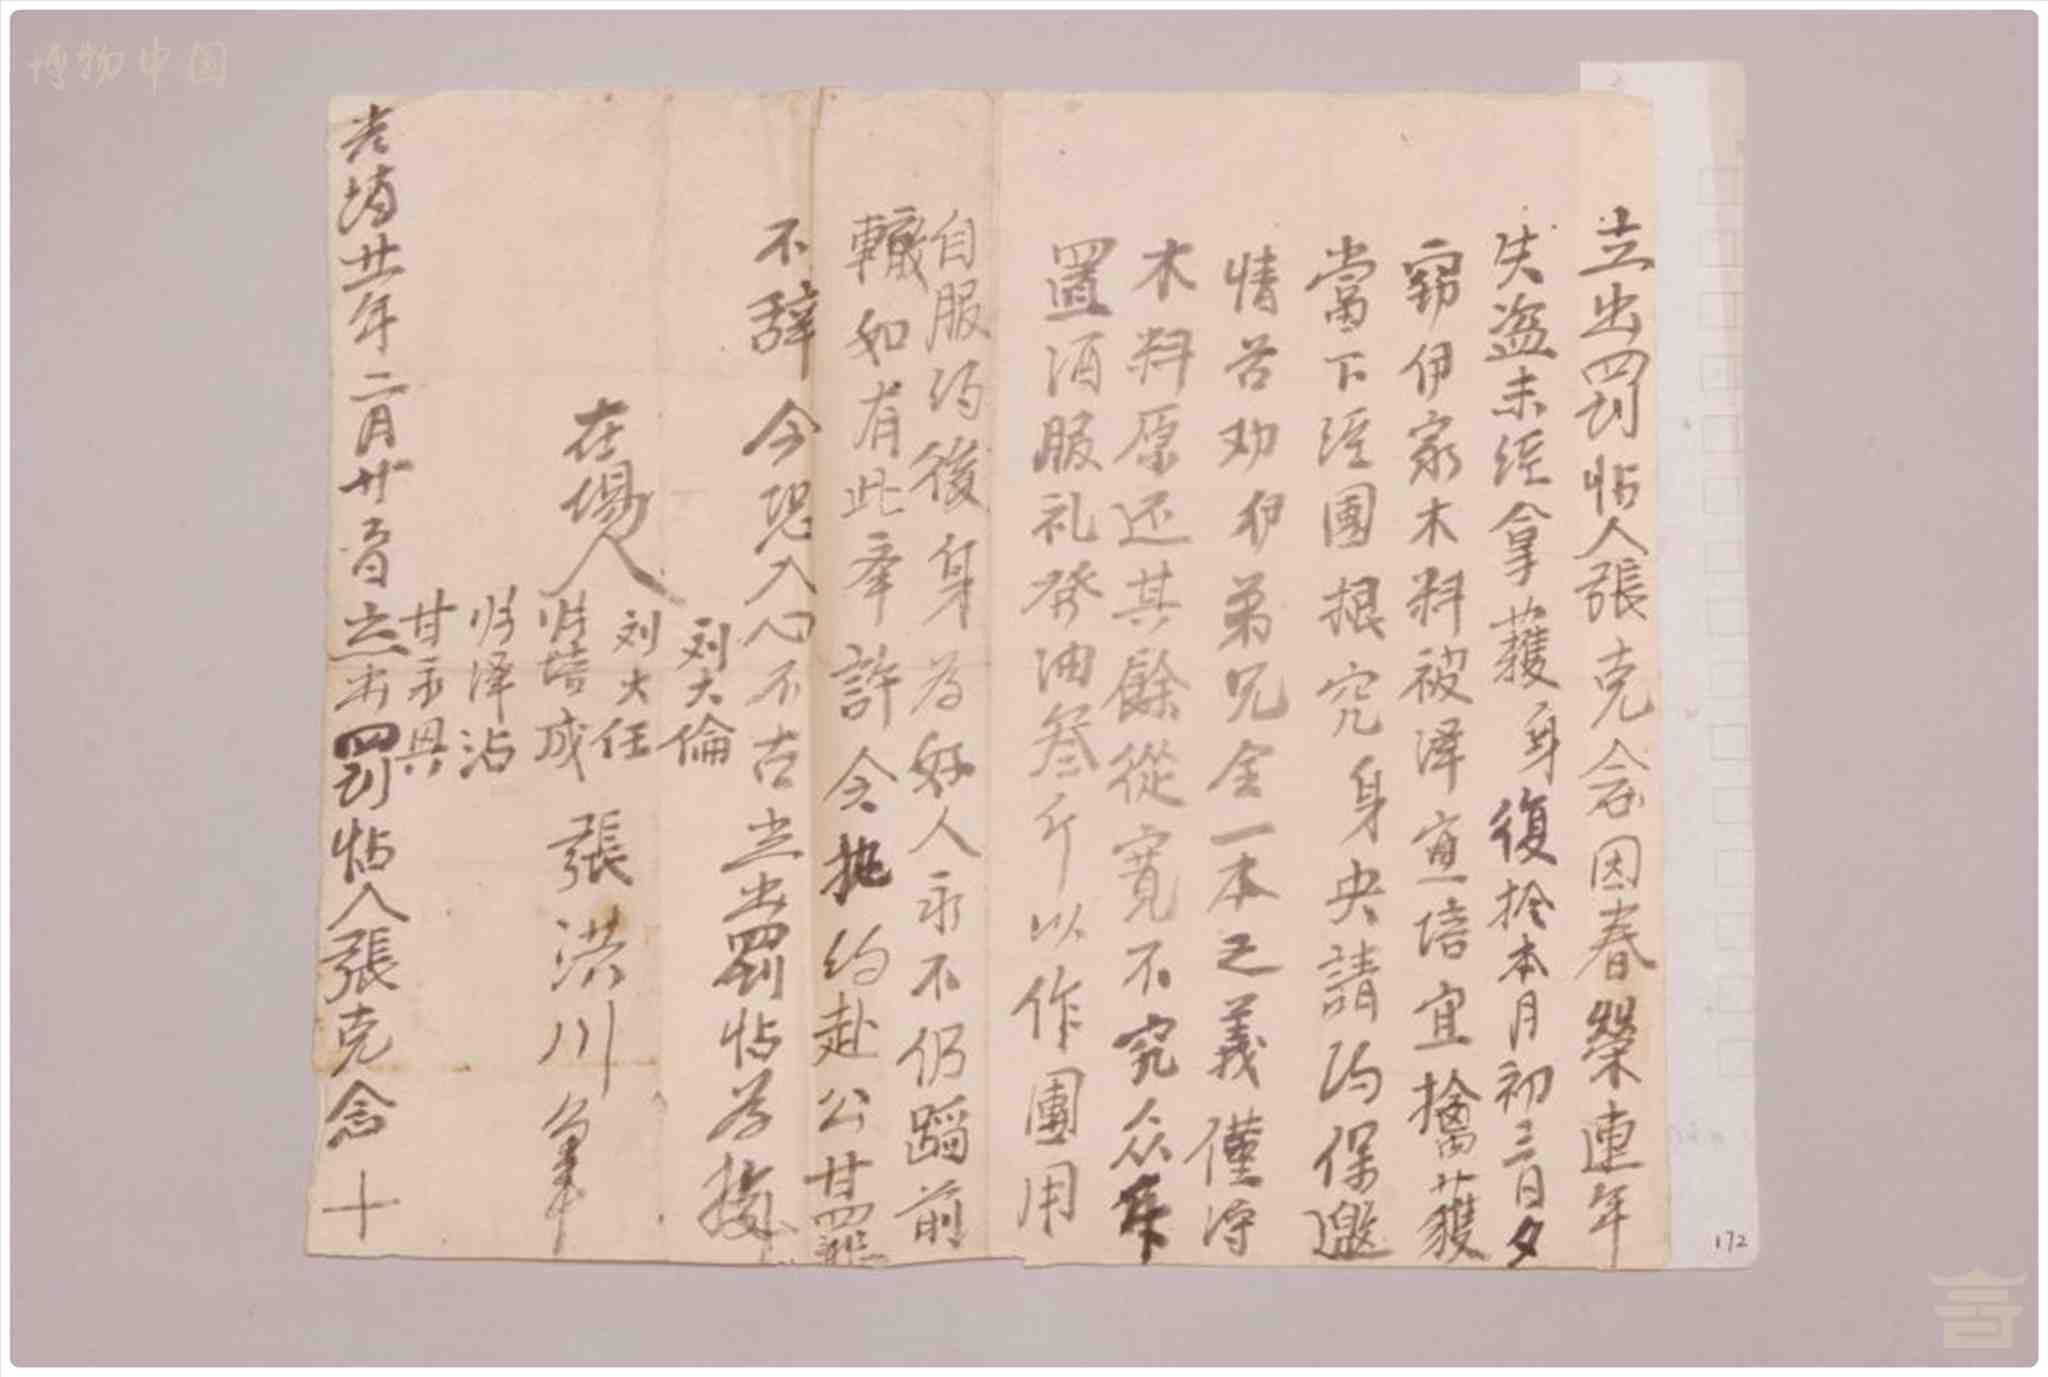 立出罰帖人張克念因春榮連年
失盜未經拿獲身復於本月初三日夕
竊伊家木料被泽宣培宜擒獲
當下經團根究身央請約保邀
情苦劝伊弟兄全一本之義僅将
木料原还其餘從寬不究众
置酒服礼發油叁斤以作團用
自服约後身为好人永不仍蹈前
轍如有此牽許令执约赴公甘罪
不辞 今恐人心不古立出罰帖为據
在場人
刘大倫
刘大任
归培成
归泽沾
甘永興
張洪川 筆
光緒廿年二月廿六日立出罰帖人張克念 十
博物中国
172